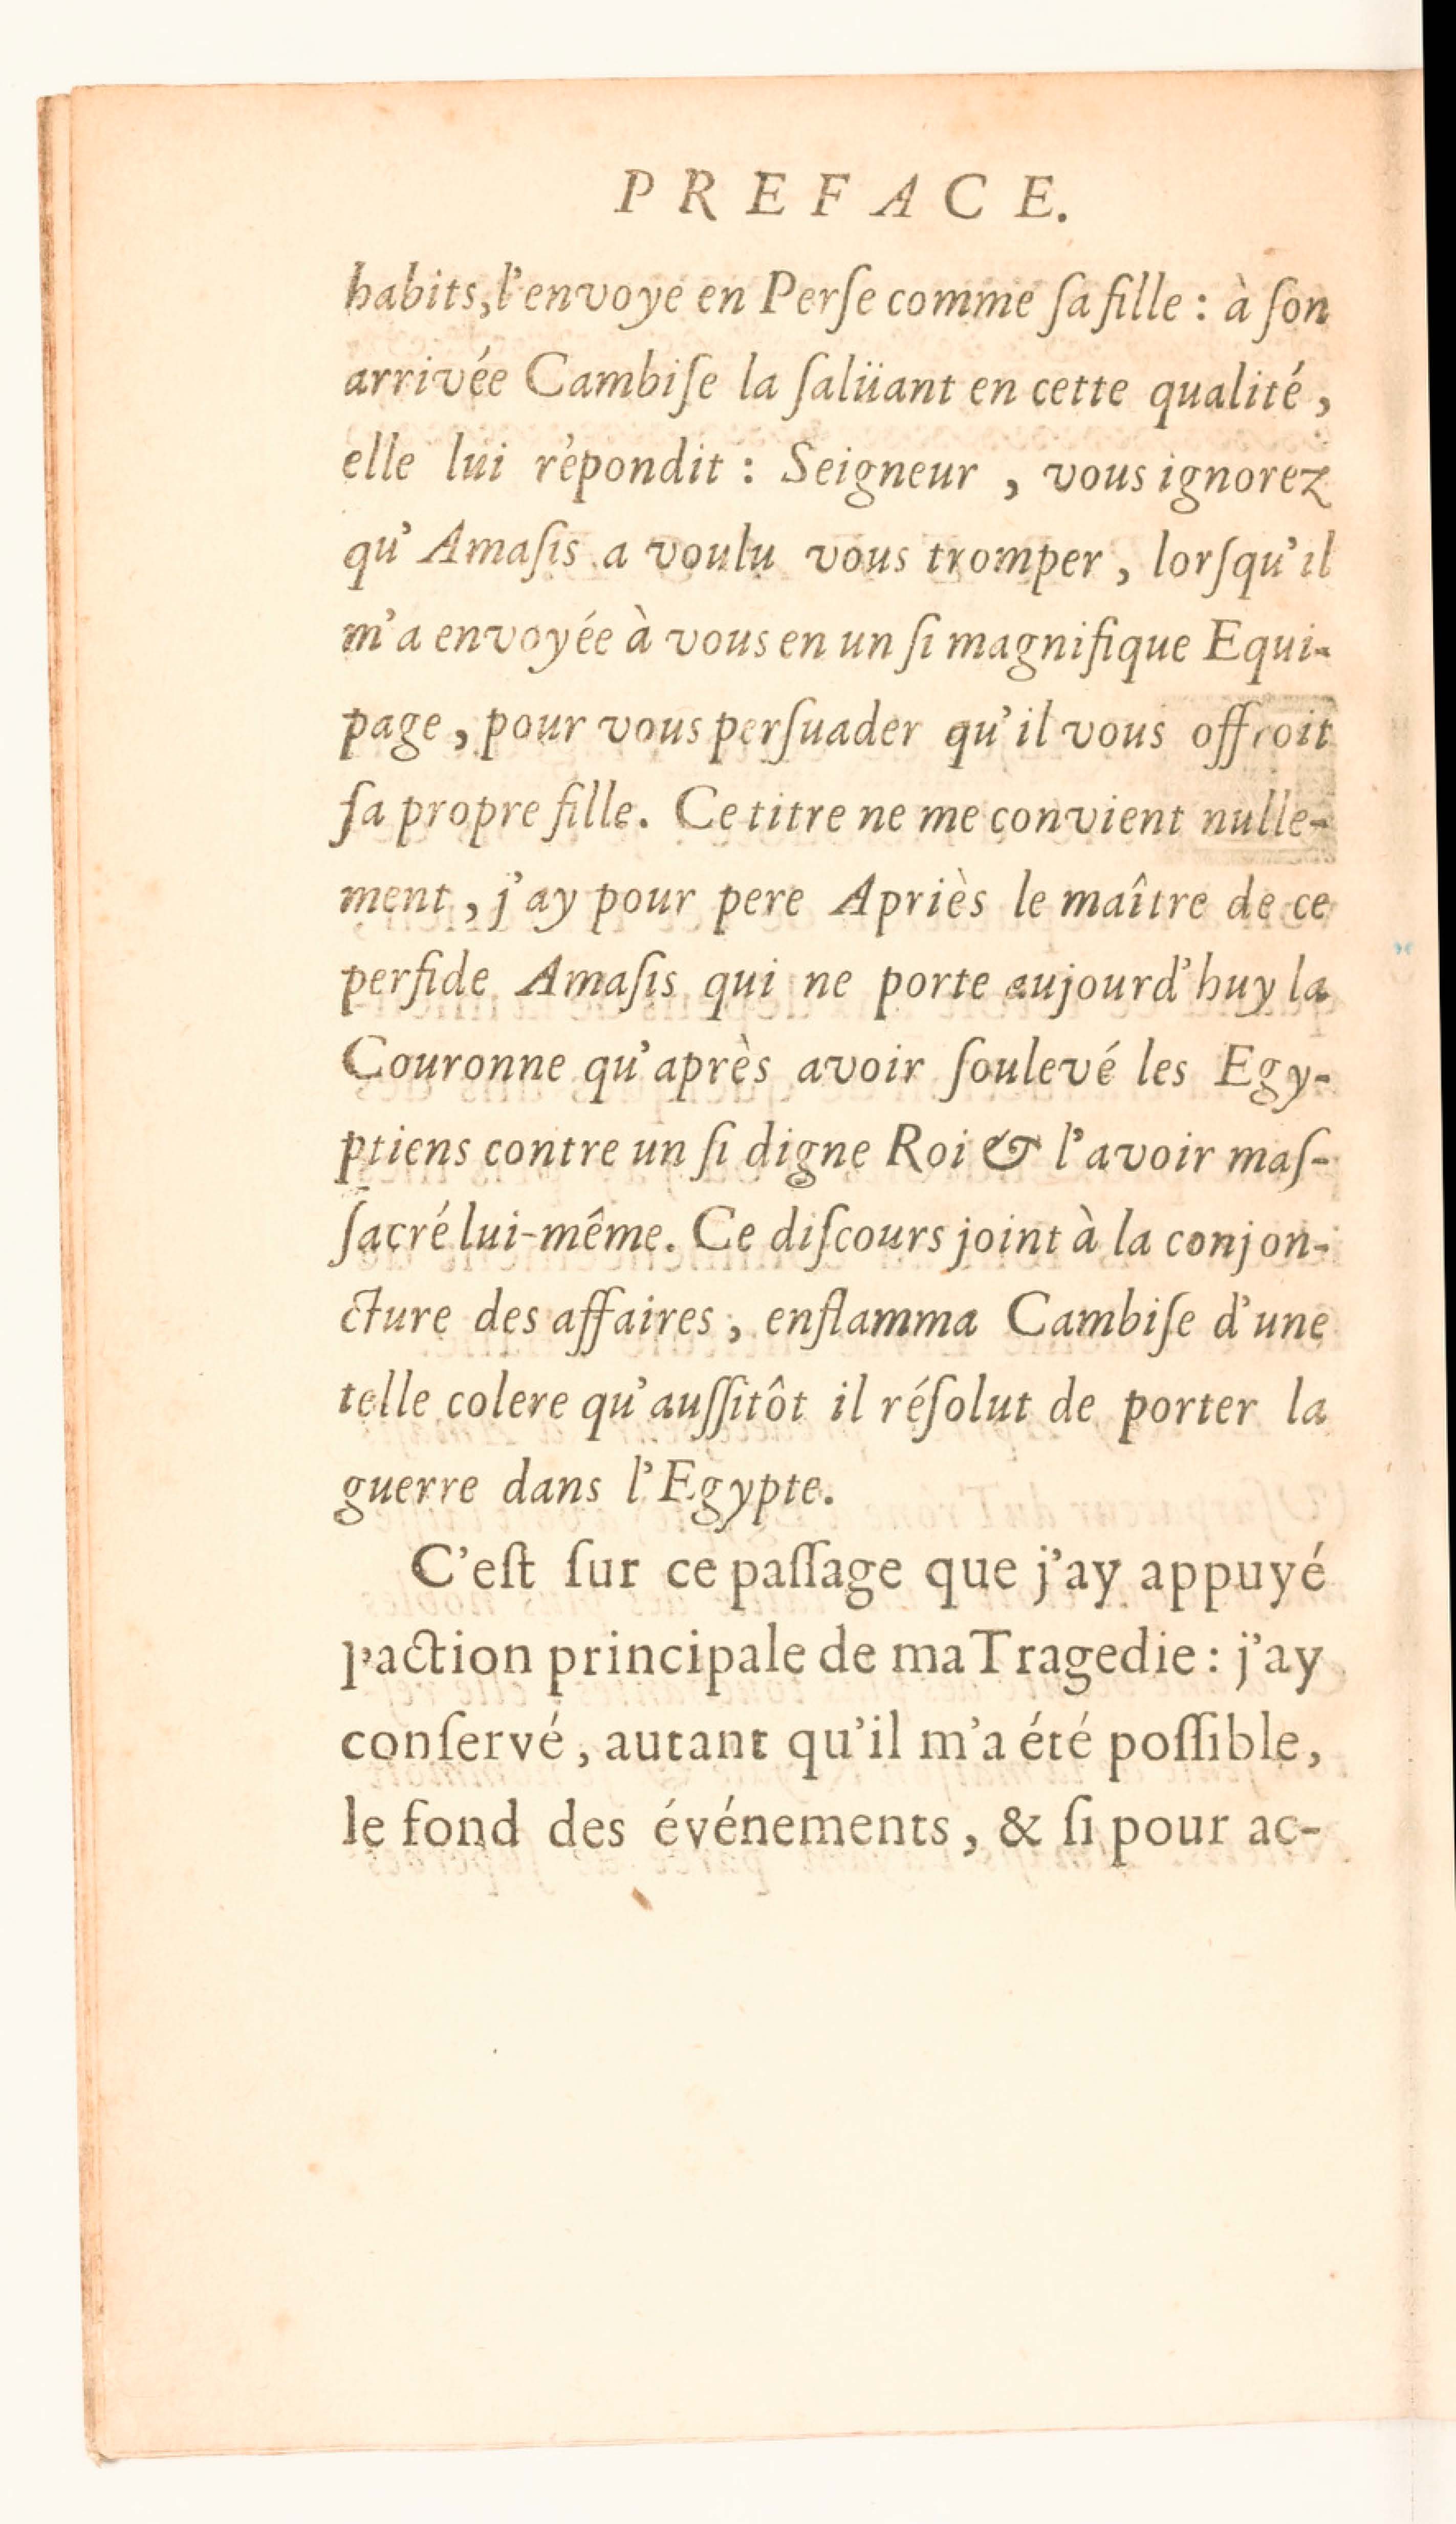 PREFACE.
habits, l'envoye en Perſe comme ſa fille : à ſon
arrivée Cambiſe la ſalüant en cette qualité,
elle lui répondit : Seigneur, vous ignorez
qu'Amaſis a voulu vous tromper, lorſqu'il
m'a envoyée à vous en un ſi magnifique Equi-
page, pour vous perſuader qu'il vous offroit
ſa propre fille. Ce titre ne me convient nulle-
ment, j'ay pour pere Apriès le maître de ce
perfide Amaſis qui ne porte aujourd'huy la
Couronne qu'après avoir ſoulevé les Egy-
ptiens contre un ſi digne Roi & l'avoir maſ-
ſacré lui-même. Ce diſcours joint à la conjon-
cture des affaires, enflamma Cambiſe d'une
telle colere qu'auſſitôt il réſolut de porter la
guerre dans l'Egypte.
C'eſt ſur ce paſſage que j'ay appuyé
l'action principale de ma Tragedie : j'ay
conſervé, autant qu'il m'a été poſſible,
le fond des événements, & ſi pour ac-